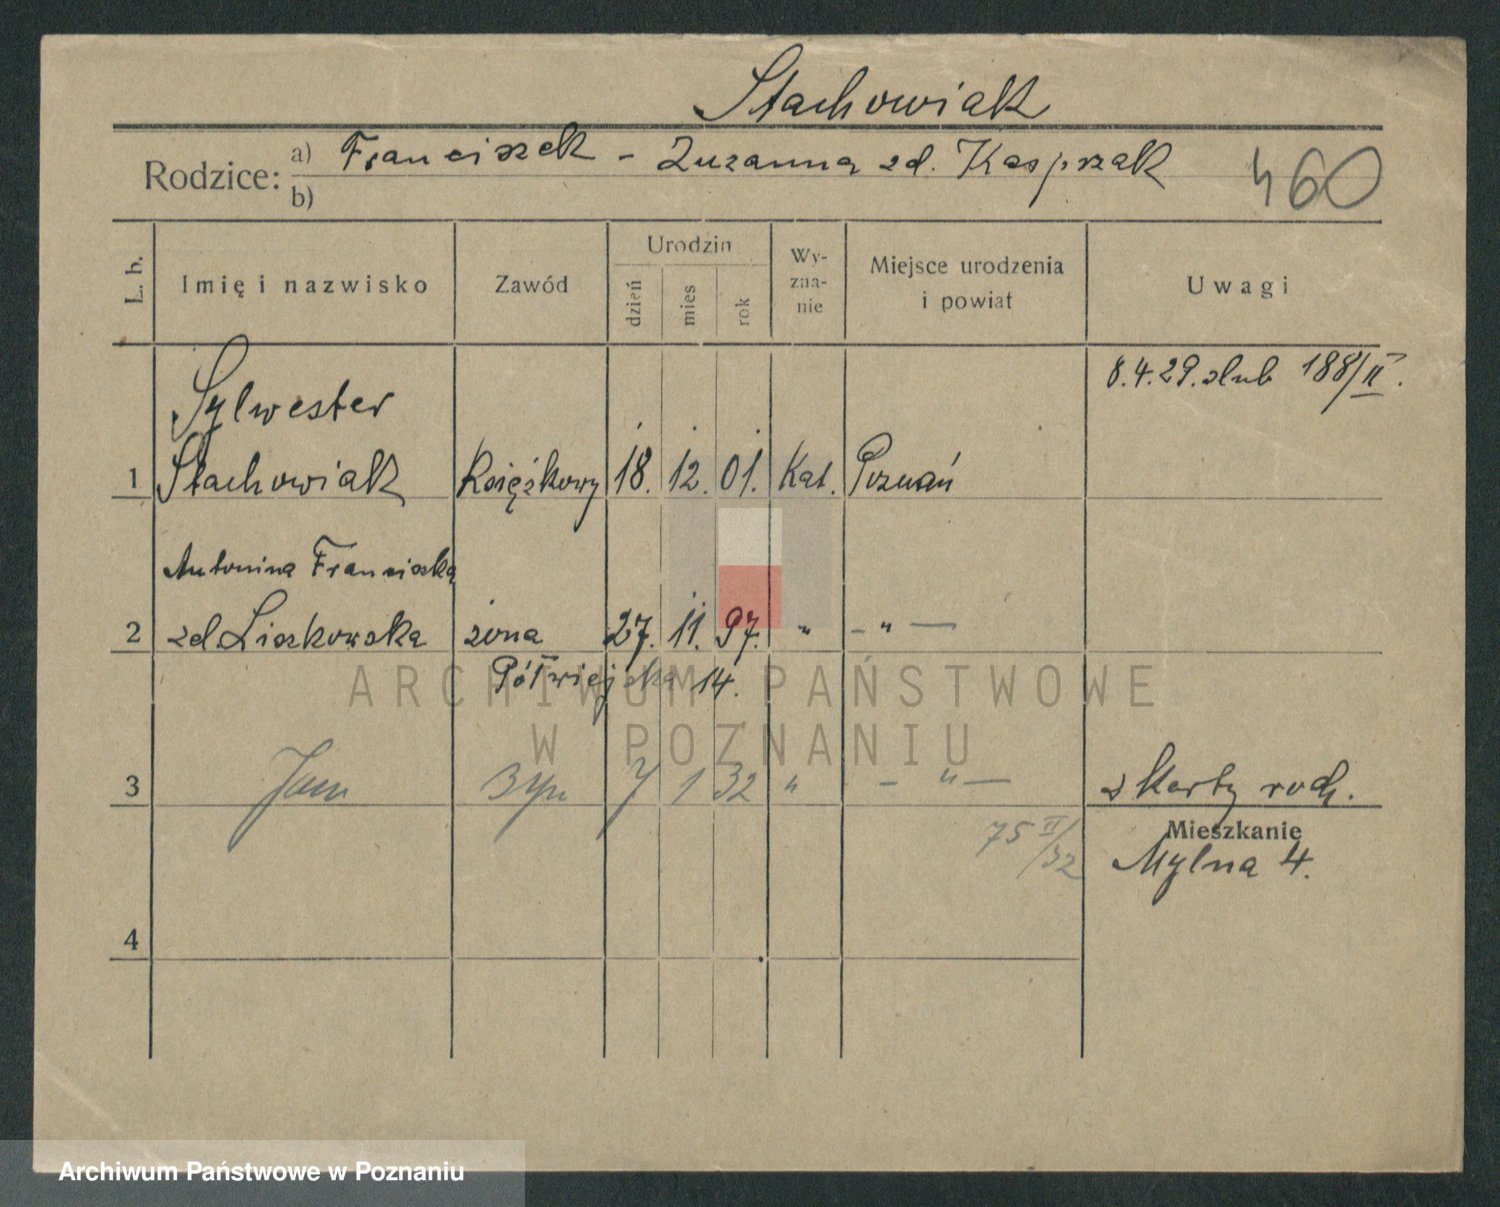 Stachowiak
Rodzice: a) Franciszek - Zuzanna zd. Kasprzak
b)
460
L. b.
Imię i nazwisko
Zawód
Urodzin
dzień
mies
rok
Wy-
zna-
nie
Miejsce urodzenia
i powiat
Uwagi
8.4.29. ślub 188/II.
Sylwester
1 Stachowiak Księżkowy 18. 12. 01. Kat. Poznań
Antonina Franciszka
2 zd. Liszkowska żona 27. 11. 97. " - " -
Półwiejska 14.
3 Jan syn 7 1 32 " - " -
z karty rodz.
75 II/32
Mieszkanie
Mylna 4.
4
ARCHIWUM PAŃSTWOWE
W POZNANIU
Archiwum Państwowe w Poznaniu